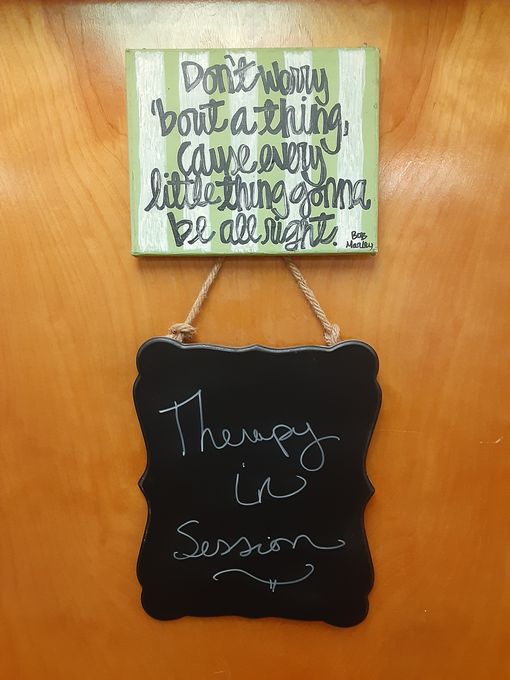 Don't worry
'bout a thing,
cause every
little thing gonna
be all right.
Bob
Marley
Therapy
in
Session